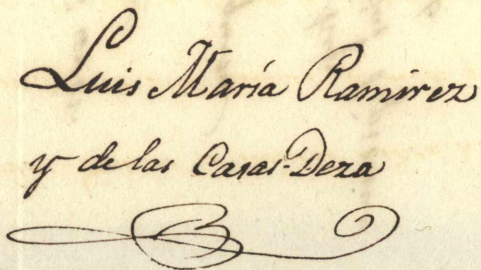 Luis María Ramirez
y de las Casas-Deza